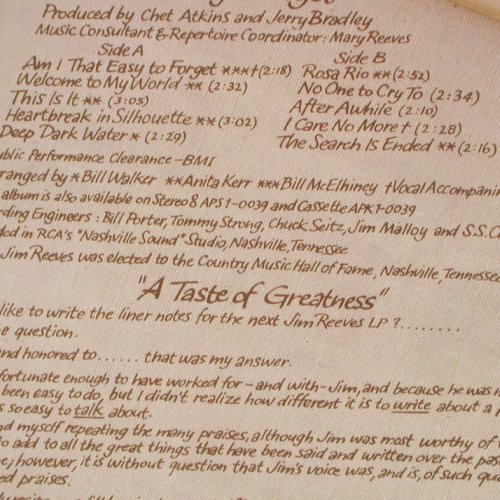 Produced by Chet Atkins and Jerry Bradley
Music Consultant & Repertoire Coordinator: Mary Reeves
Side A
Am I That Easy to Forget ***† (2:18)
Welcome to My World ** (2:32)
This Is It ** (3:05)
Heartbreak in Silhouette ** (3:02)
Deep Dark Water * (2:29)
Side B
Rosa Rio ** (2:52)
No One to Cry To (2:34)
After Awhile (2:10)
I Care No More † (2:28)
The Search Is Ended ** (2:16)
Public Performance Clearance - BMI
ranged by * Bill Walker ** Anita Kerr *** Bill McElhiney † Vocal Accompani
album is also available on Stereo 8 APS1-0039 and Cassette APK1-0039
ding Engineers: Bill Porter, Tommy Strong, Chuck Seitz, Jim Malloy and S.S.C
ded in RCA's "Nashville Sound" Studio, Nashville, Tennessee
Jim Reeves was elected to the Country Music Hall of Fame, Nashville, Tennessee
"A Taste of Greatness"
like to write the liner notes for the next Jim Reeves LP?........
e question.
nd honored to...... that was my answer.
fortunate enough to have worked for - and with - Jim, and because he was
been easy to do, but I didn't realize how different it is to write about a
s so easy to talk about.
nd myself repeating the many praises, although Jim was most worthy of
to add to all the great things that have been said and written over the past
e; however, it is without question that Jim's voice was, and is, of such qu
ed praises.